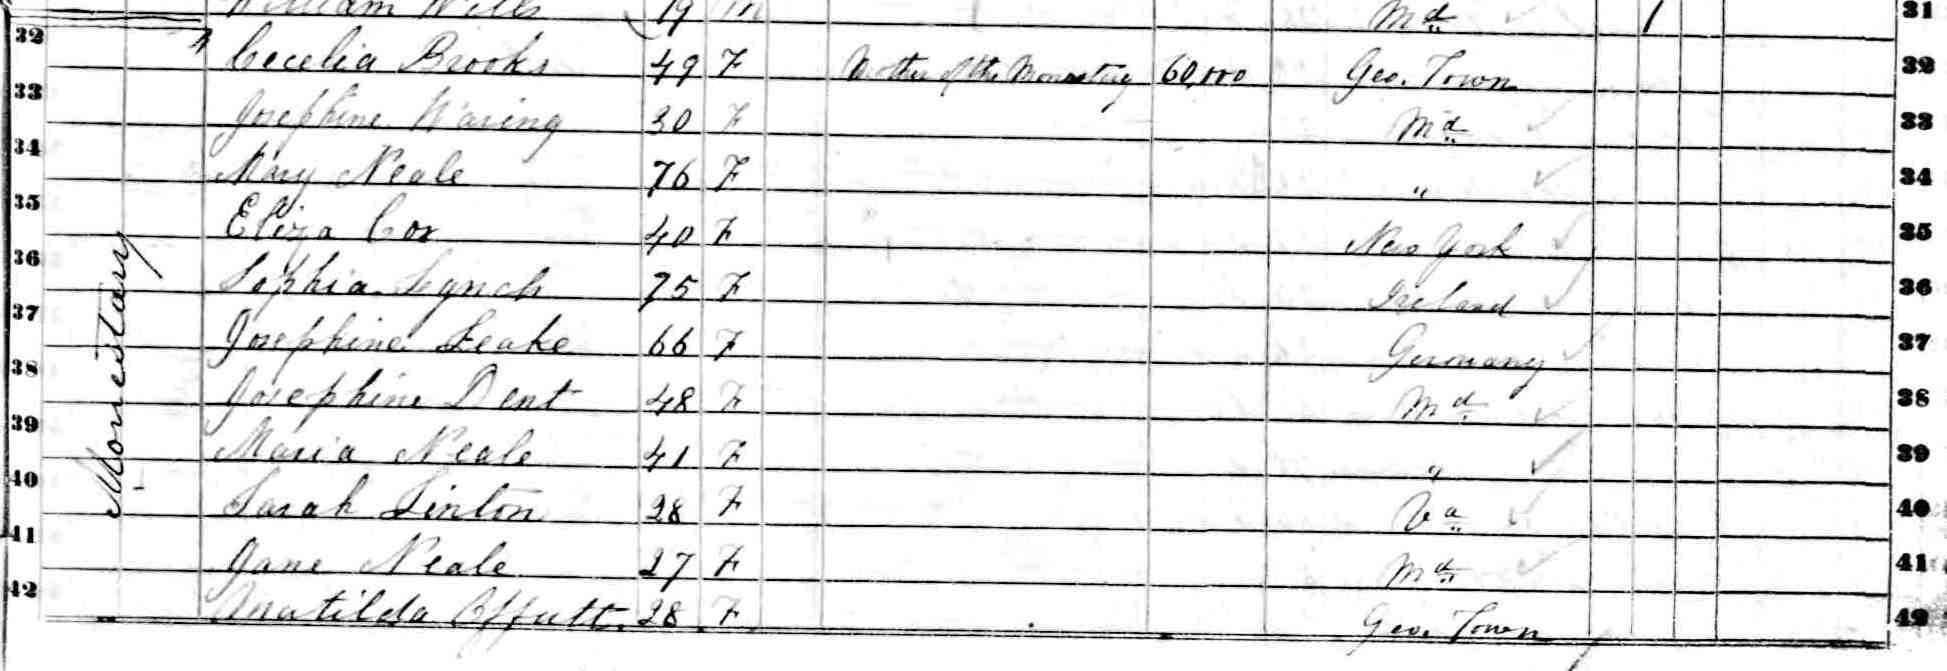 William Wills 19 m Md 1 31
32 Cecelia Brooks 49 F Mother of the Monastery 60,000 Geo. Town 32
33 Josephine Waring 30 F Md 33
34 Mary Neale 76 F " 34
35 Eliza Cox 40 F New York 35
36 Sophia Lynch 75 F Ireland 36
37 Josephine Leake 66 F Germany 37
38 Josephine Dent 48 F Md 38
39 Maria Neale 41 F " 39
40 Sarah Linton 28 F Va 40
41 Jane Neale 27 F Md 41
42 Matilda Offutt 28 F Geo. Town 42
Monestary